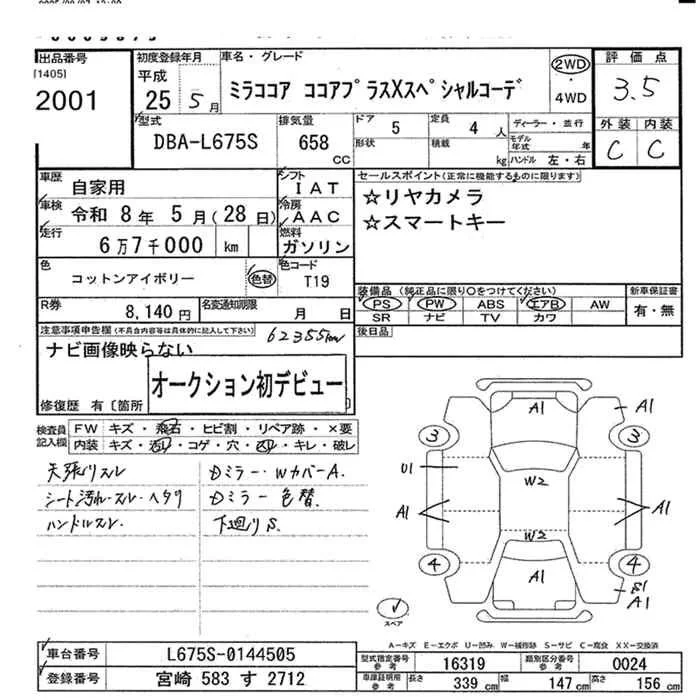 出品番号
[1405]
2001
初度登録年月
平成
25 5月
車名・グレード
ミラココア ココアプラスXスペシャルコーデ
2WD
4WD
評価点
3.5
外装 内装
C C
型式
DBA-L675S
排気量
658
CC
ドア 5
形状
定員 4 人
積載 kg
ディーラー・並行
モデル年式 年
ハンドル 左・右
車歴
自家用
車検 令和 8年 5月(28日)
走行
6万7千000 km
シフト
IAT
冷房
AAC
燃料
ガソリン
セールスポイント(正常に機能するものに限ります)
☆リヤカメラ
☆スマートキー
色
コットンアイボリー
色替
色コード
T19
R券
8,140円
名変通知期限
月 日
装備品(純正品に限り○をつけてください)
PS PW ABS エアB AW
SR ナビ TV カワ
新車保証書
有・無
後日品
注意事項申告欄(不具合内容等は具体的に記入して下さい)
62355km
ナビ画像映らない
オークション初デビュー
修復歴 有〔箇所
検査員記入欄
FW キズ・飛石・ヒビ割・リペア跡・×要
内装 キズ・汚れ・コゲ・穴・スレ・キレ・破レ
天張リスレ
シート汚れ・スレ・ヘタリ
ハンドルスレ
Dミラー・WカバーA.
Dミラー色替.
下廻りS.
A1
A1
3
3
U1
W2
A1
A1
W2
4
4
A1
S1
A1
スペア
A-キズ E-エクボ U-凹み W-補修跡 S-サビ C-腐食 XX-交換済
車台番号
L675S-0144505
登録番号
宮崎 583 す 2712
型式指定番号
参考
16319
類別区分番号
参考
0024
車庫証明用
参考
長さ
339 cm
幅
147 cm
高さ
156 cm